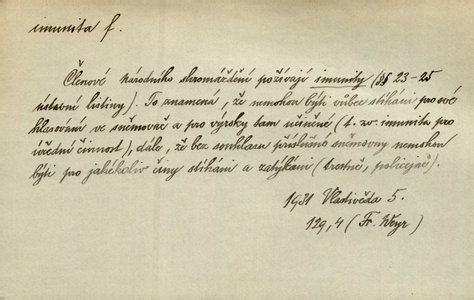 imunita f.
Členové národního shromáždění požívají imunity (§§ 23-25
ústavní listiny). To znamená, že nemohou býti vůbec stíháni pro své
hlasování ve sněmovně a pro výroky tam učiněné (t. zv. imunita pro
úřední činnost), dále, že bez souhlasu příslušné sněmovny nemohou
býti pro jakékoliv činy stíháni a zatýkáni (trestně, policejně).
1931 Vlastivěda 5.
129, 4 (Fr. Weyr)